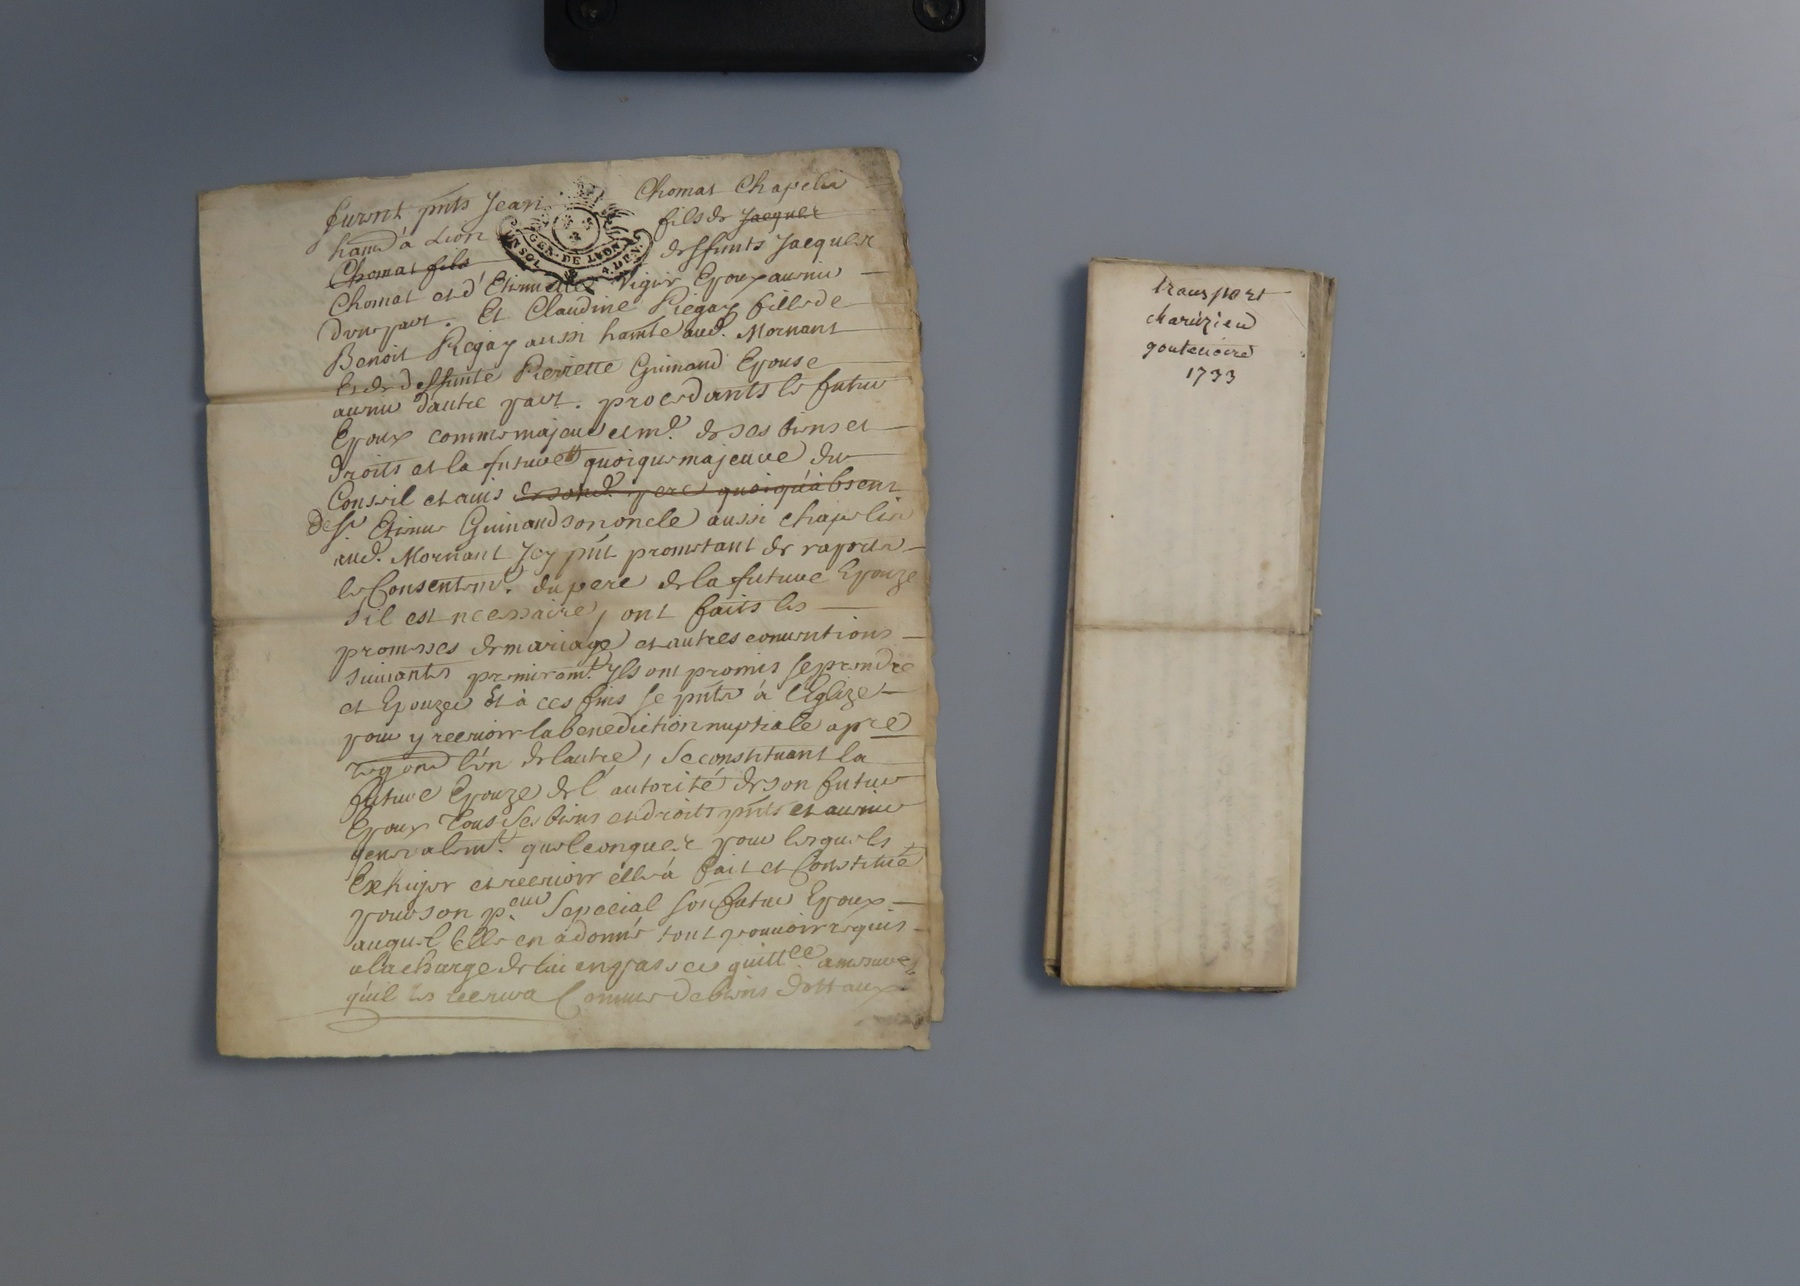 furent pnts Jean Chomat Chapelier
hant à Lion fils de Jacques
Chomat fils deffunts Jacques
GEN. DE LYON
UN SOL 4. DEN.
Chomat et d'Etiennette Viger Epoux avenir
d'une part. Et Claudine Piegay fille de
Benoit Piegay aussi hante aud. Mornant
Et de deffunte Pierrette Guinand Epouse
avenir d'autre part. procedants le futur
Epoux comme majeur et me. de ses biens et
droits et la future quoique majeure du
Conseil et avis de sond. pere quoiqu'absent
de Sr. Etienne Guinand son oncle aussi chapelier
aud. Mornant Icy pnt prometant de raporter
le Consentemt. du pere de la future Epouze
s'il est necessaire, ont faits les
promesses de mariage et autres conventions
suivantes premiremt. Ils ont promis se prendre
et Epouzer Et à ces fins se pnter à l'Eglize
pour y recevoir la benediction nuptiale a pre
l'un de l'autre, se constituant la
future Epouze de l'autorité de son futur
Epoux tous ses biens et droits pnts et avenir
generalemt. quelconques pour lesquels
Exhiger et recevoir elle a fait et Constitué
pour son p.eur special son futur Epoux
auquel Elle en a donné tout pouvoir requis
a la charge de lui en passer quittce a mesure
qu'il les recevra Comme de biens dottaux
transport
charézieu
goutenoire
1733